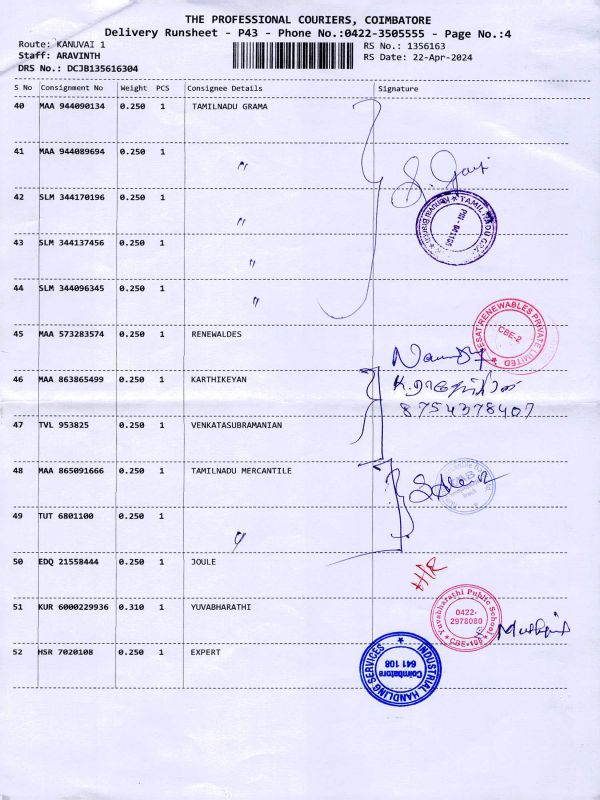 THE PROFESSIONAL COURIERS, COIMBATORE
Delivery Runsheet - P43 - Phone No.:0422-3505555 - Page No.:4
Route: KANUVAI 1
RS No.: 1356163
Staff: ARAVINTH
RS Date: 22-Apr-2024
DRS No.: DCJB135616304
S No Consignment No Weight PCS Consignee Details Signature
40 MAA 944090134 0.250 1 TAMILNADU GRAMA
41 MAA 944089694 0.250 1 〃
42 SLM 344170196 0.250 1 〃
43 SLM 344137456 0.250 1 〃
44 SLM 344096345 0.250 1 〃
45 MAA 573283574 0.250 1 RENEWALDES
RENEWABLES PRIVATE LIMITED
CBE-2
46 MAA 863865499 0.250 1 KARTHIKEYAN
8754378407
47 TVL 953825 0.250 1 VENKATASUBRAMANIAN
48 MAA 865091666 0.250 1 TAMILNADU MERCANTILE
49 TUT 6801100 0.250 1 〃
50 EDQ 21558444 0.250 1 JOULE
H/R
51 KUR 6000229936 0.310 1 YUVABHARATHI
Yuvabharathi Public School
0422-
2978080
52 HSR 7020108 0.250 1 EXPERT
INDUSTRIAL HANDLING SERVICES
Coimbatore
641 108